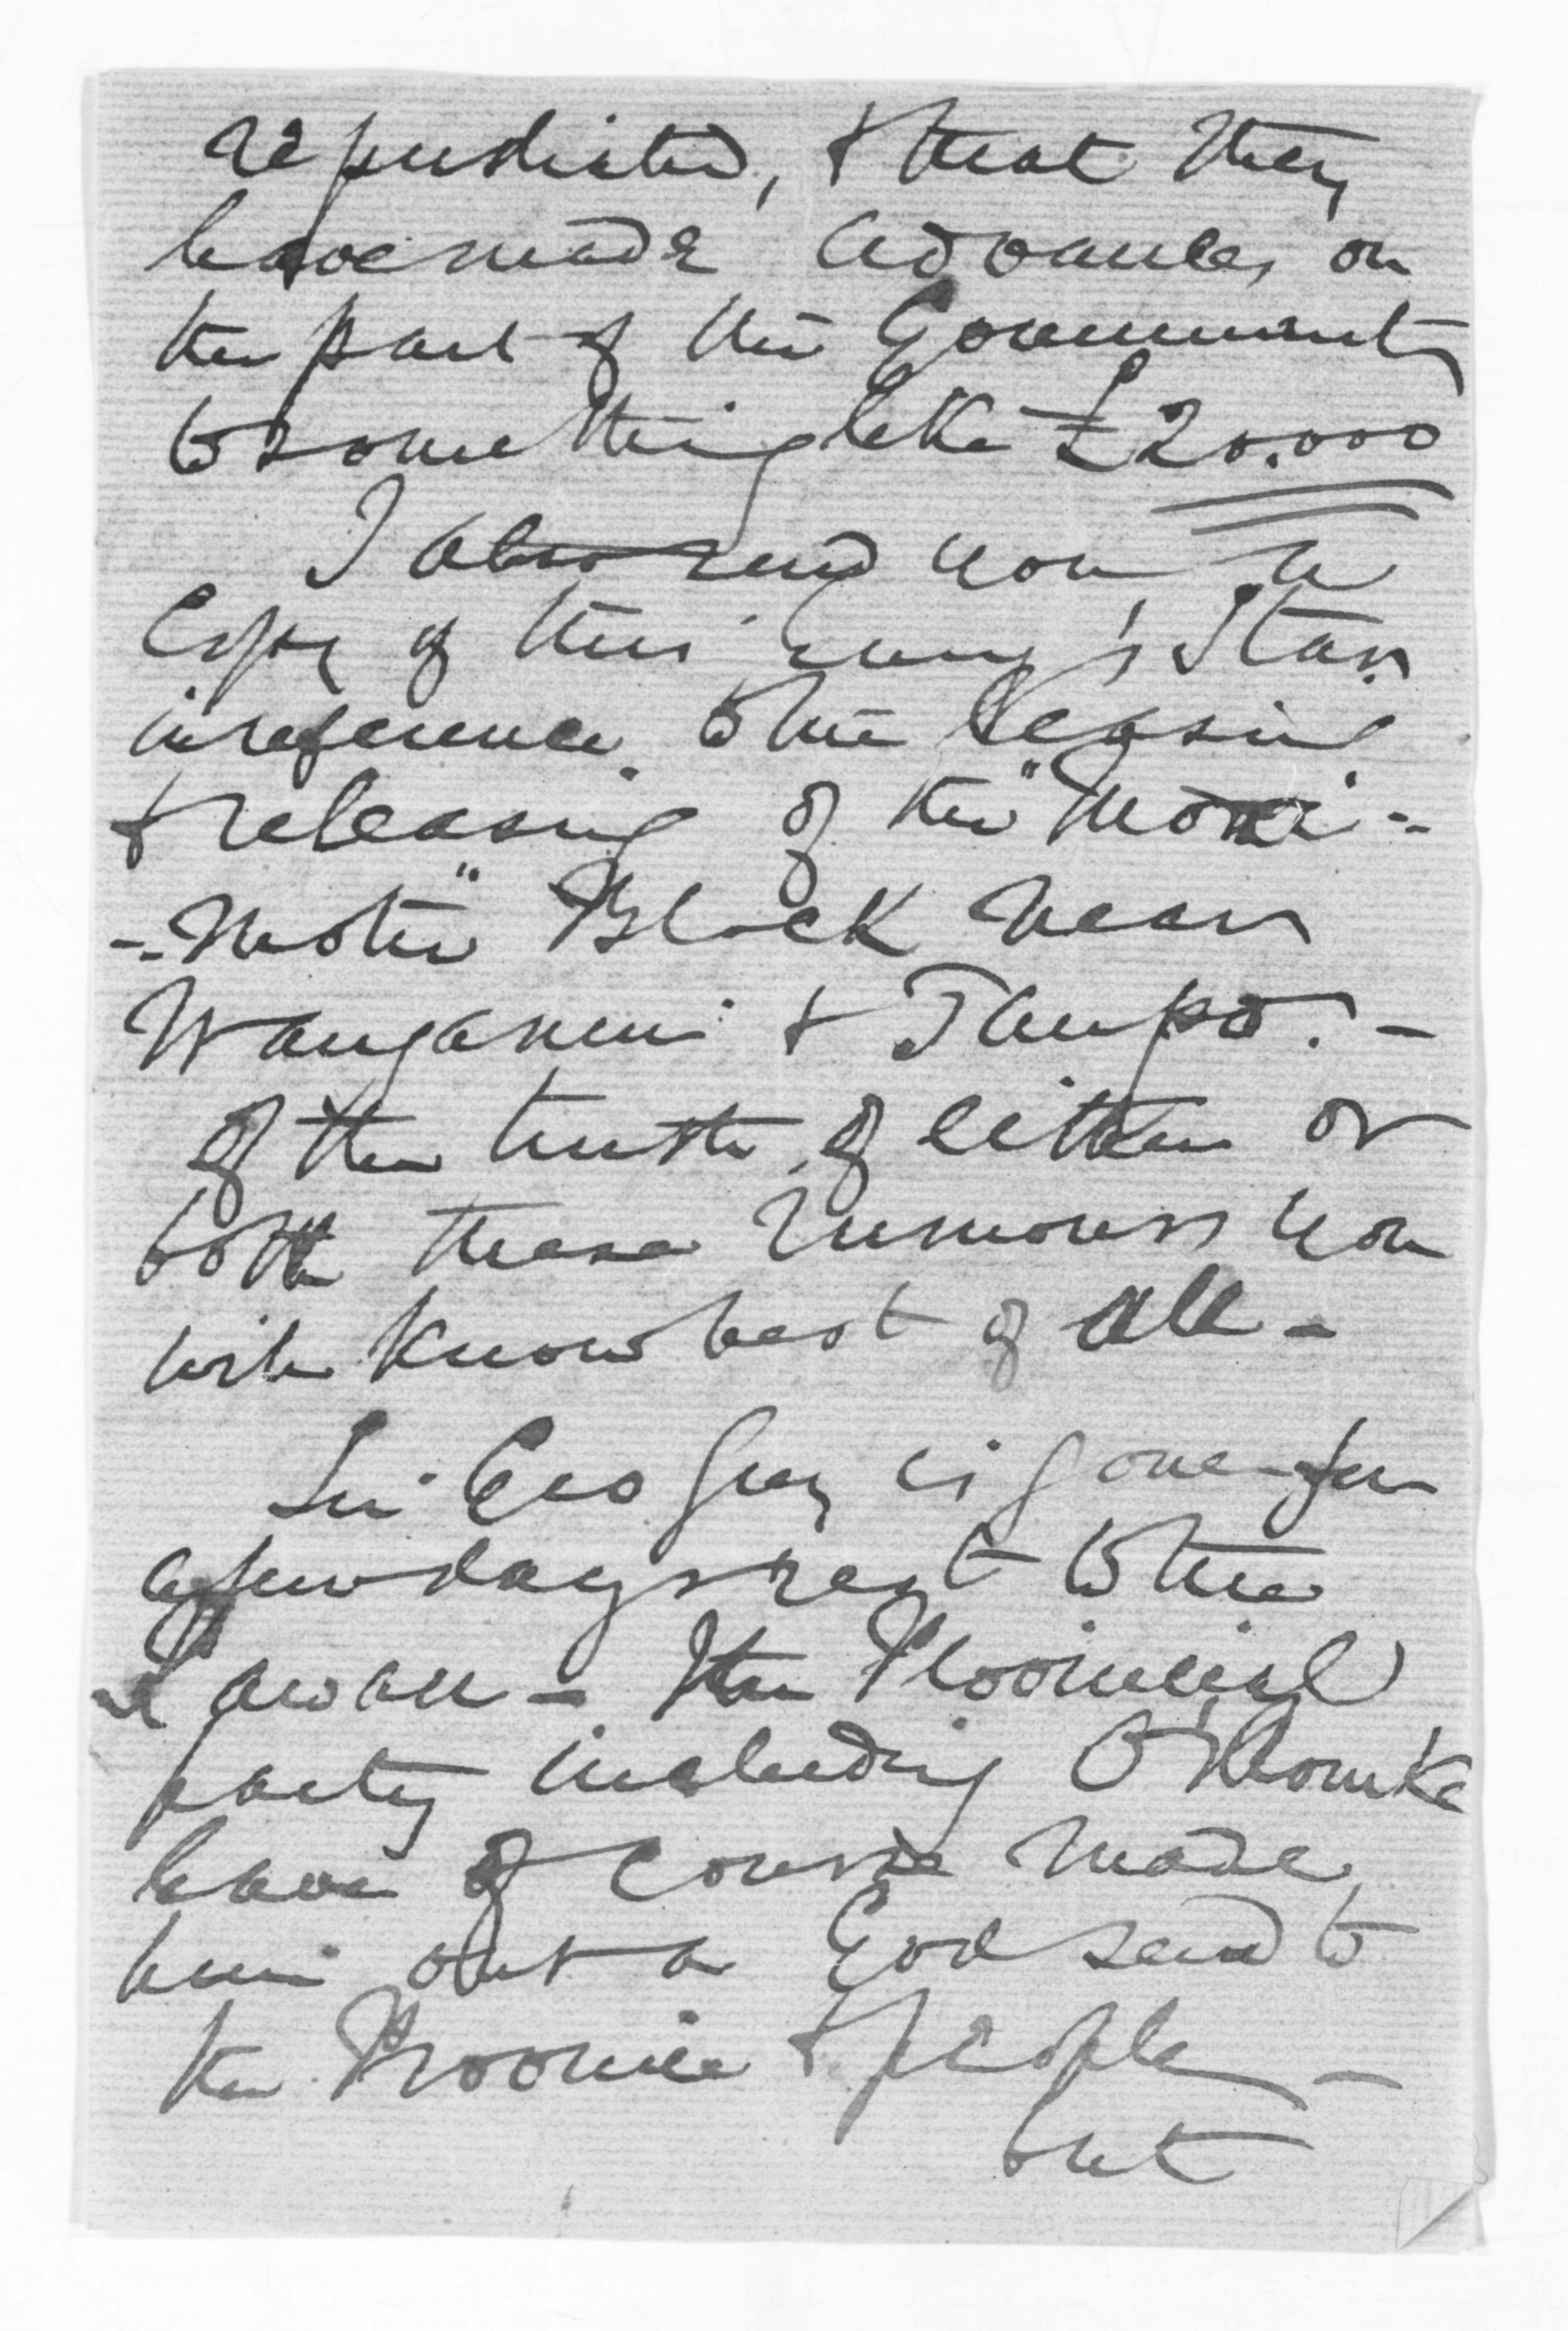 repudiated, & that they
have made advances on
the part of the Government
to something like £20.000
I also send you a
Copy of this Eveng's Star
in reference to the leasing
& releasing of the "
- Motu" Block near
Wanganui & Taupo. -
of the truth of either or
both these rumours you
will know best of all -
Sir Geo Grey is gone for
a few days rest to the
Kawau - The Provincial
party including O'Rourke
have of course made
him out a God send to
the Province & people -
but